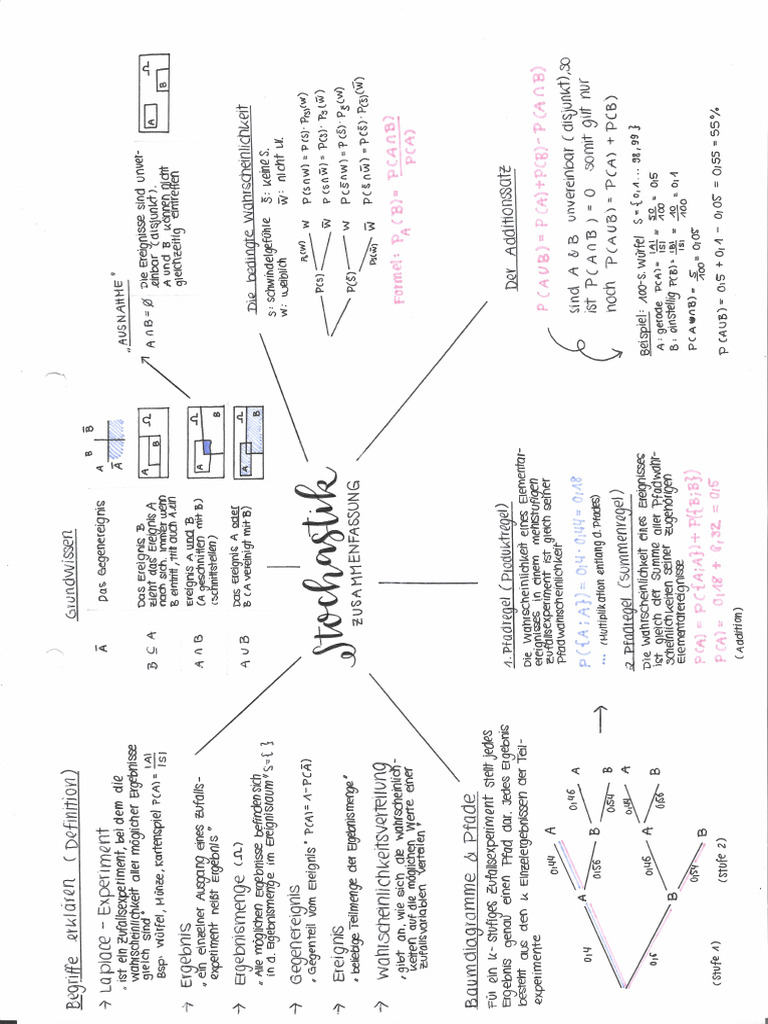 Begriffe erklären (Definition)
→ Laplace - Experiment
„ ist ein Zufallsexperiment, bei dem die
Wahrscheinlichkeit aller möglicher Ergebnisse
gleich sind"
Bsp: Würfel, Münze, Kartenspiel P(A) = |A| / |S|
→ Ergebnis
„ ein einzelner Ausgang eines Zufalls-
experiment heißt Ergebnis"
→ Ergebnismenge (Ω)
„ Alle möglichen Ergebnisse befinden sich
in d. Ergebnismenge im Ereignisraum" S={ }
→ Gegenereignis
„ Gegenteil vom Ereignis" P(A) = 1-P(Ā)
→ Ereignis
„ beliebige Teilmenge der Ergebnismenge"
→ Wahrscheinlichkeitsverteilung
„ gibt an, wie sich die Wahrscheinlich-
keiten auf die möglichen Werte einer
Zufallsvariablen verteilen"
Grundwissen
Ā Das Gegenereignis
A B B̄
Ā
B ⊆ A Das Ereignis B
zieht das Ereignis A
nach sich. Immer wenn
B eintritt, tritt auch A ein
A B Ω
A ∩ B Ereignis A und B
(A geschnitten mit B)
(Schnittstellen)
A B Ω
A ∪ B Das Ereignis A oder
B (A vereinigt mit B)
A B Ω
"AUSNAHME"
A ∩ B = ∅ Die Ereignisse sind unver-
einbar (disjunkt).
A und B können nicht
gleichzeitig eintreffen
A B Ω
Stochastik
ZUSAMMENFASSUNG
Die bedingte Wahrscheinlichkeit
S: Schwindelgefühle S̄: keine S.
W: weiblich W̄: nicht W.
P(S) Pₛ(W) W P(S∩W) = P(S) · Pₛ(W)
W̄ P(S∩W̄) = P(S) · Pₛ(W̄)
P(S̄) W P(S̄∩W) = P(S̄) · Pₛ̄(W)
Pₛ̄(W̄) W̄ P(S̄∩W̄) = P(S̄) · Pₛ̄(W̄)
Formel: P_A(B) = P(A∩B) / P(A)
Der Additionssatz
P(A∪B) = P(A)+P(B)-P(A∩B)
sind A & B unvereinbar (disjunkt), so
ist P(A∩B) = 0 somit gilt nur
noch P(A∪B) = P(A) + P(B)
Beispiel: 100-s. Würfel S={0,1... 98,99}
A: gerade P(A) = |A| / |S| = 50 / 100 = 0,5
B: einstellig P(B) = |B| / |S| = 10 / 100 = 0,1
P(A∩B) = 5 / 100 = 0,05
P(A∪B) = 0,5 + 0,1 - 0,05 = 0,55 = 55%
Baumdiagramme & Pfade
Für ein k-stufiges Zufallsexperiment stellt jedes
Ergebnis genau einen Pfad dar. Jedes Ergebnis
besteht aus den k Einzelergebnissen der Teil-
experimente →
0,4 A 0,44 A
0,56 B
0,46 A
0,54 B
0,6 B 0,46 A
0,44 A
0,56 B
0,54 B
(Stufe 1) (Stufe 2)
1. Pfadregel (Produktregel)
Die Wahrscheinlichkeit eines Elementar-
ereignisses in einem mehrstufigen
Zufallsexperiment ist gleich seiner
Pfadwahrscheinlichkeit
P({A;A}) = 0,4 · 0,44 = 0,18
... (Multiplikation entlang d. Pfades)
2. Pfadregel (Summenregel)
Die Wahrscheinlichkeit eines Ereignisses
ist gleich der Summe aller Pfadwahr-
scheinlichkeiten seiner zugehörigen
Elementarereignisse
P(A) = P({A;A}) + P({B;B})
P(A) = 0,18 + 0,32 = 0,5
(Addition)